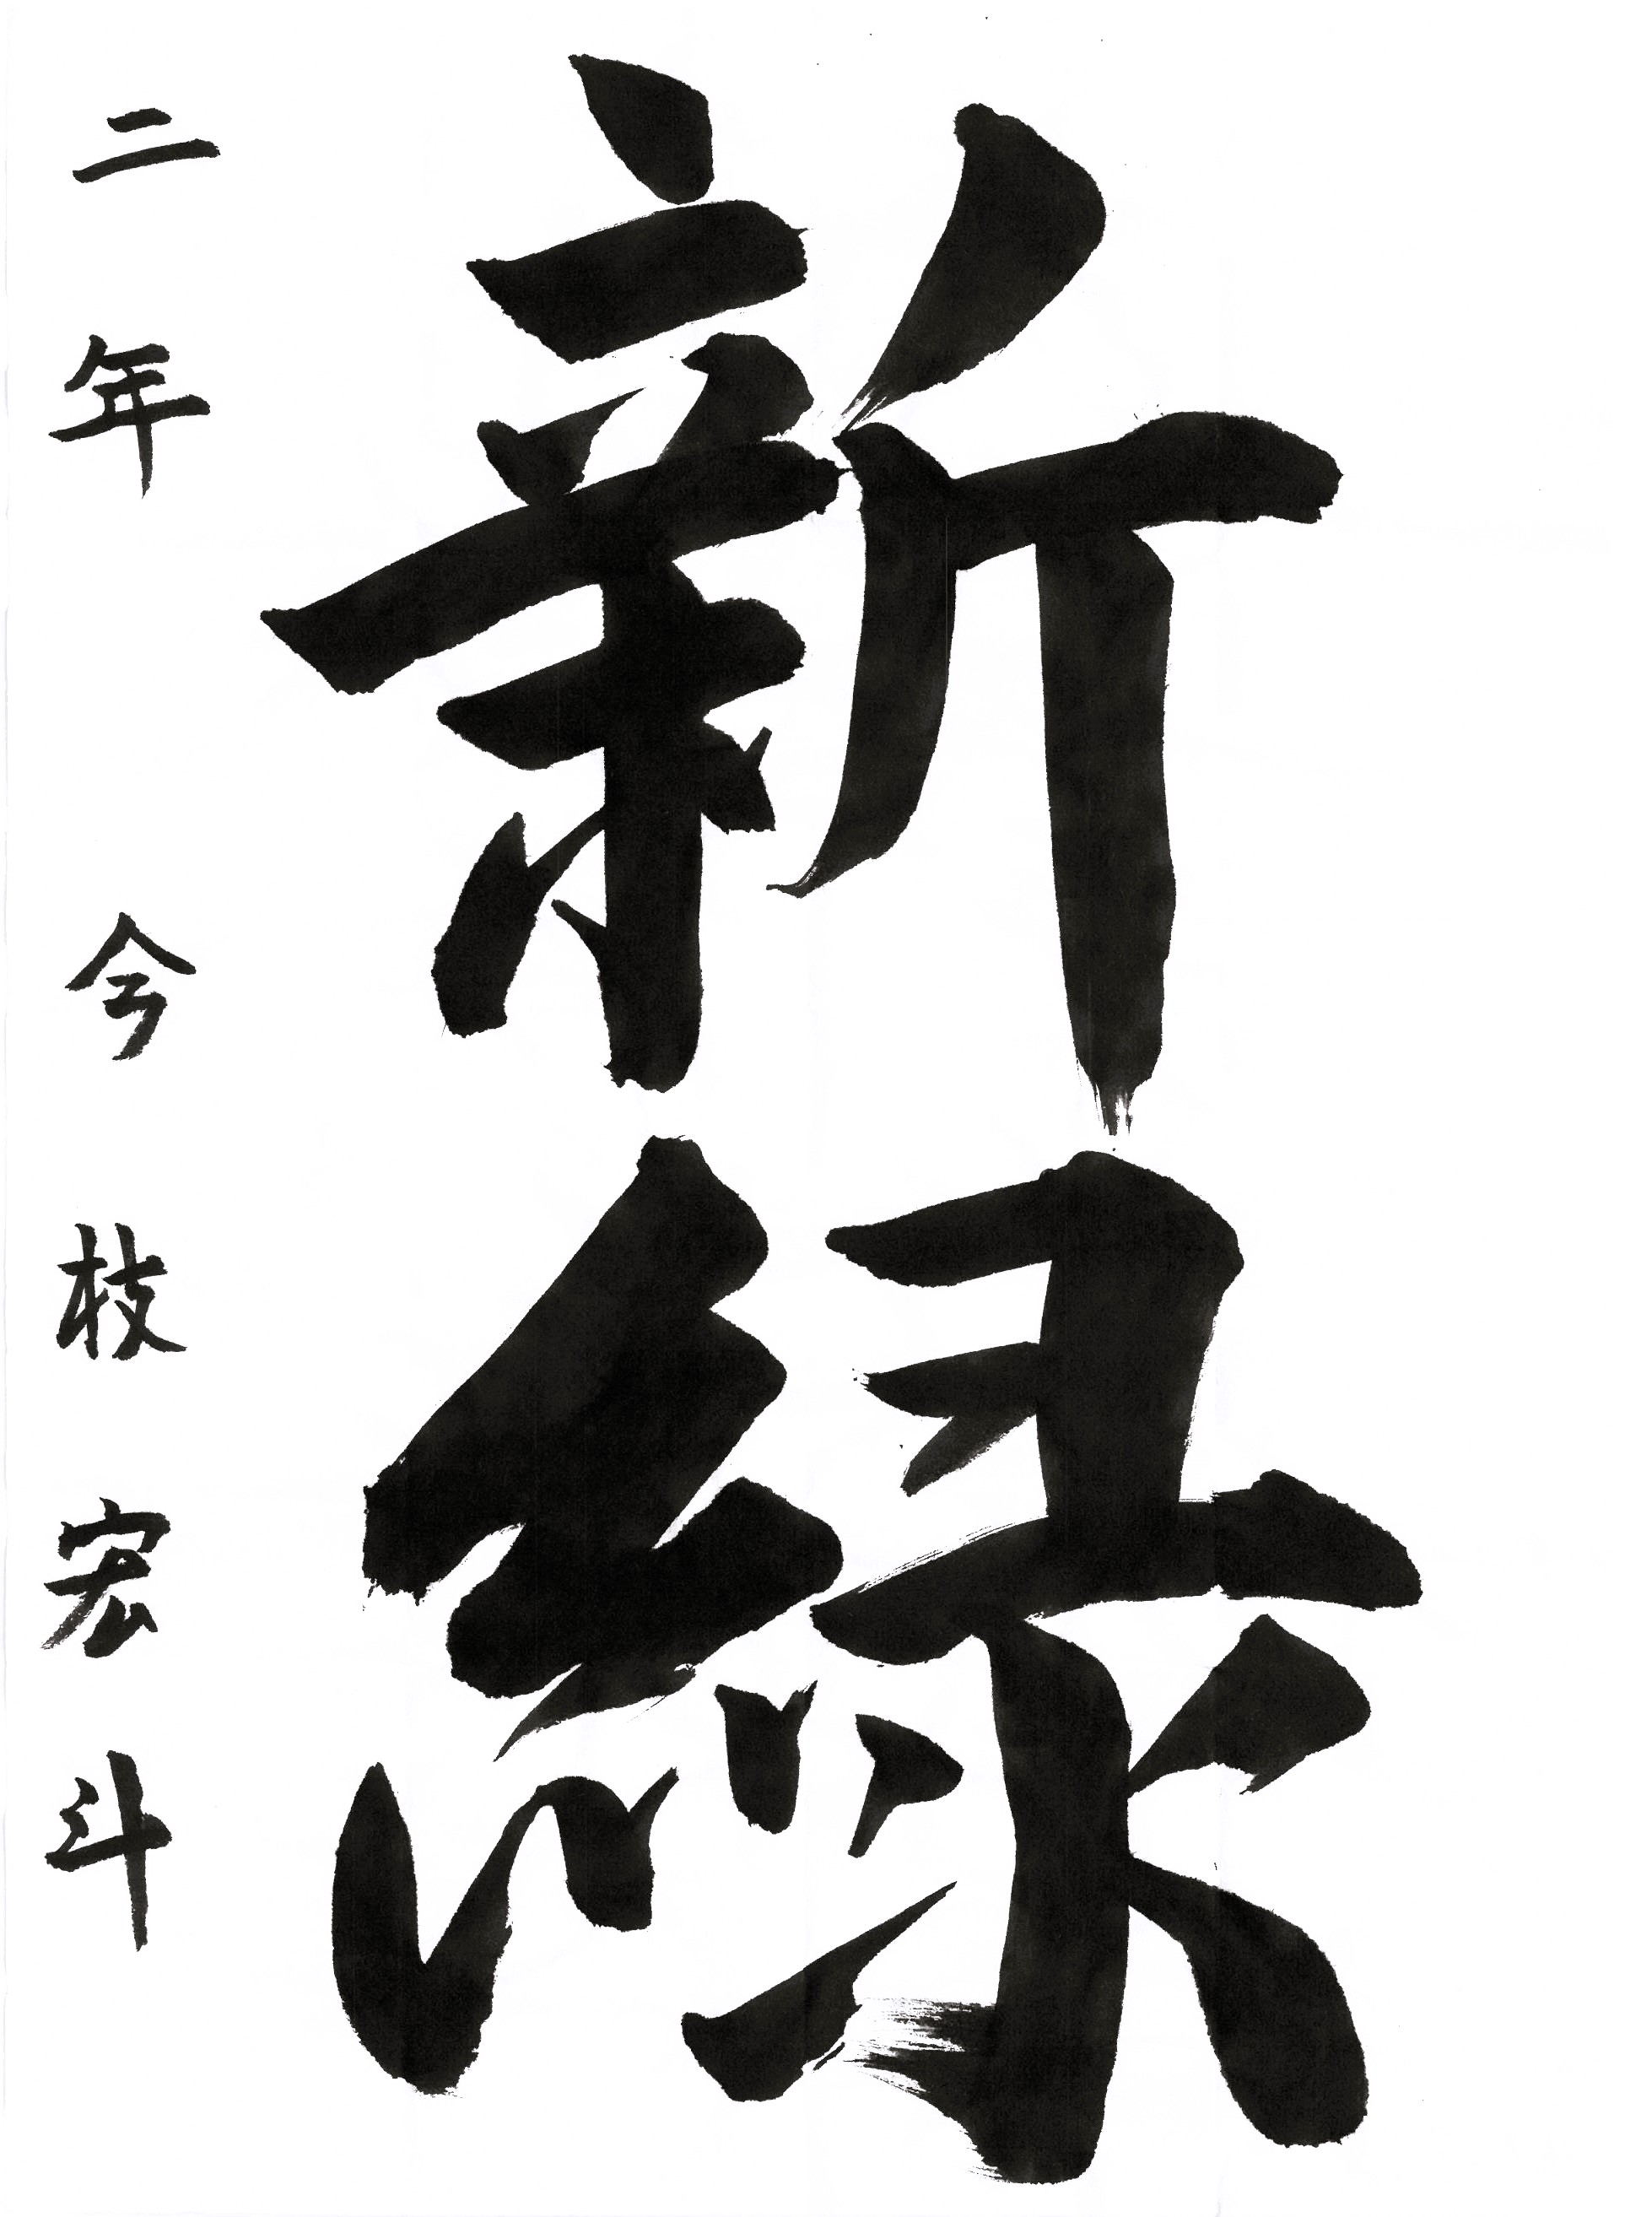 新緑
二年 今枝宏斗